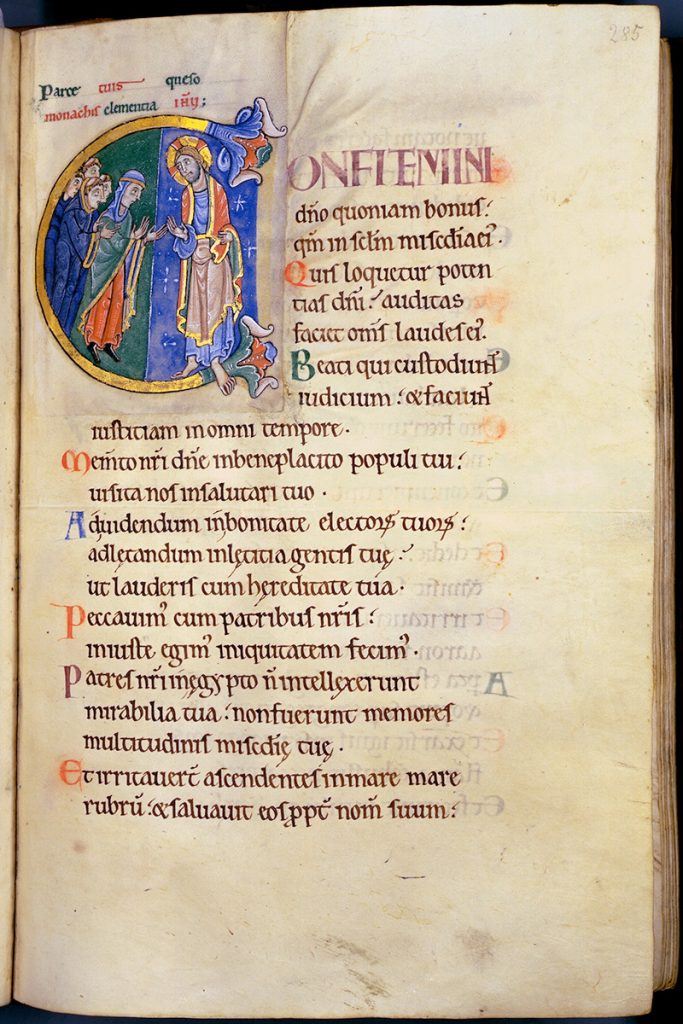 285
Parce tuis queso
monachis clementia ihū;
CONFITEMINI
dño quoniam bonus:
qm̄ in sclm̄ misc̄dia ei᾽.
Quis loquetur poten
tias dñi: auditas
faciet om̄s laudes ei᾽.
Beati qui custodiunt
iudicium: & faciunt
iustitiam in omni tempore.
Mem̄to nr̄i dn̄e in beneplacito populi tui:
uisita nos in salutari tuo.
Ad uidendum in bonitate electorꝝ tuorꝝ:
ad lętandum in lętitia gentis tuę:
ut lauderis cum hęreditate tua.
Peccauim᾽ cum patribus nr̄is:
iniuste egim᾽ iniquitatem fecim᾽.
Patres nr̄i in ęgypto n̄ intellexerunt
mirabilia tua: non fuerunt memores
multitudinis misc̄dię tuę.
Et irritauer̄t ascendentes in mare mare
rubrū: & saluauit eos ꝓpt̄ nom̄ suum: